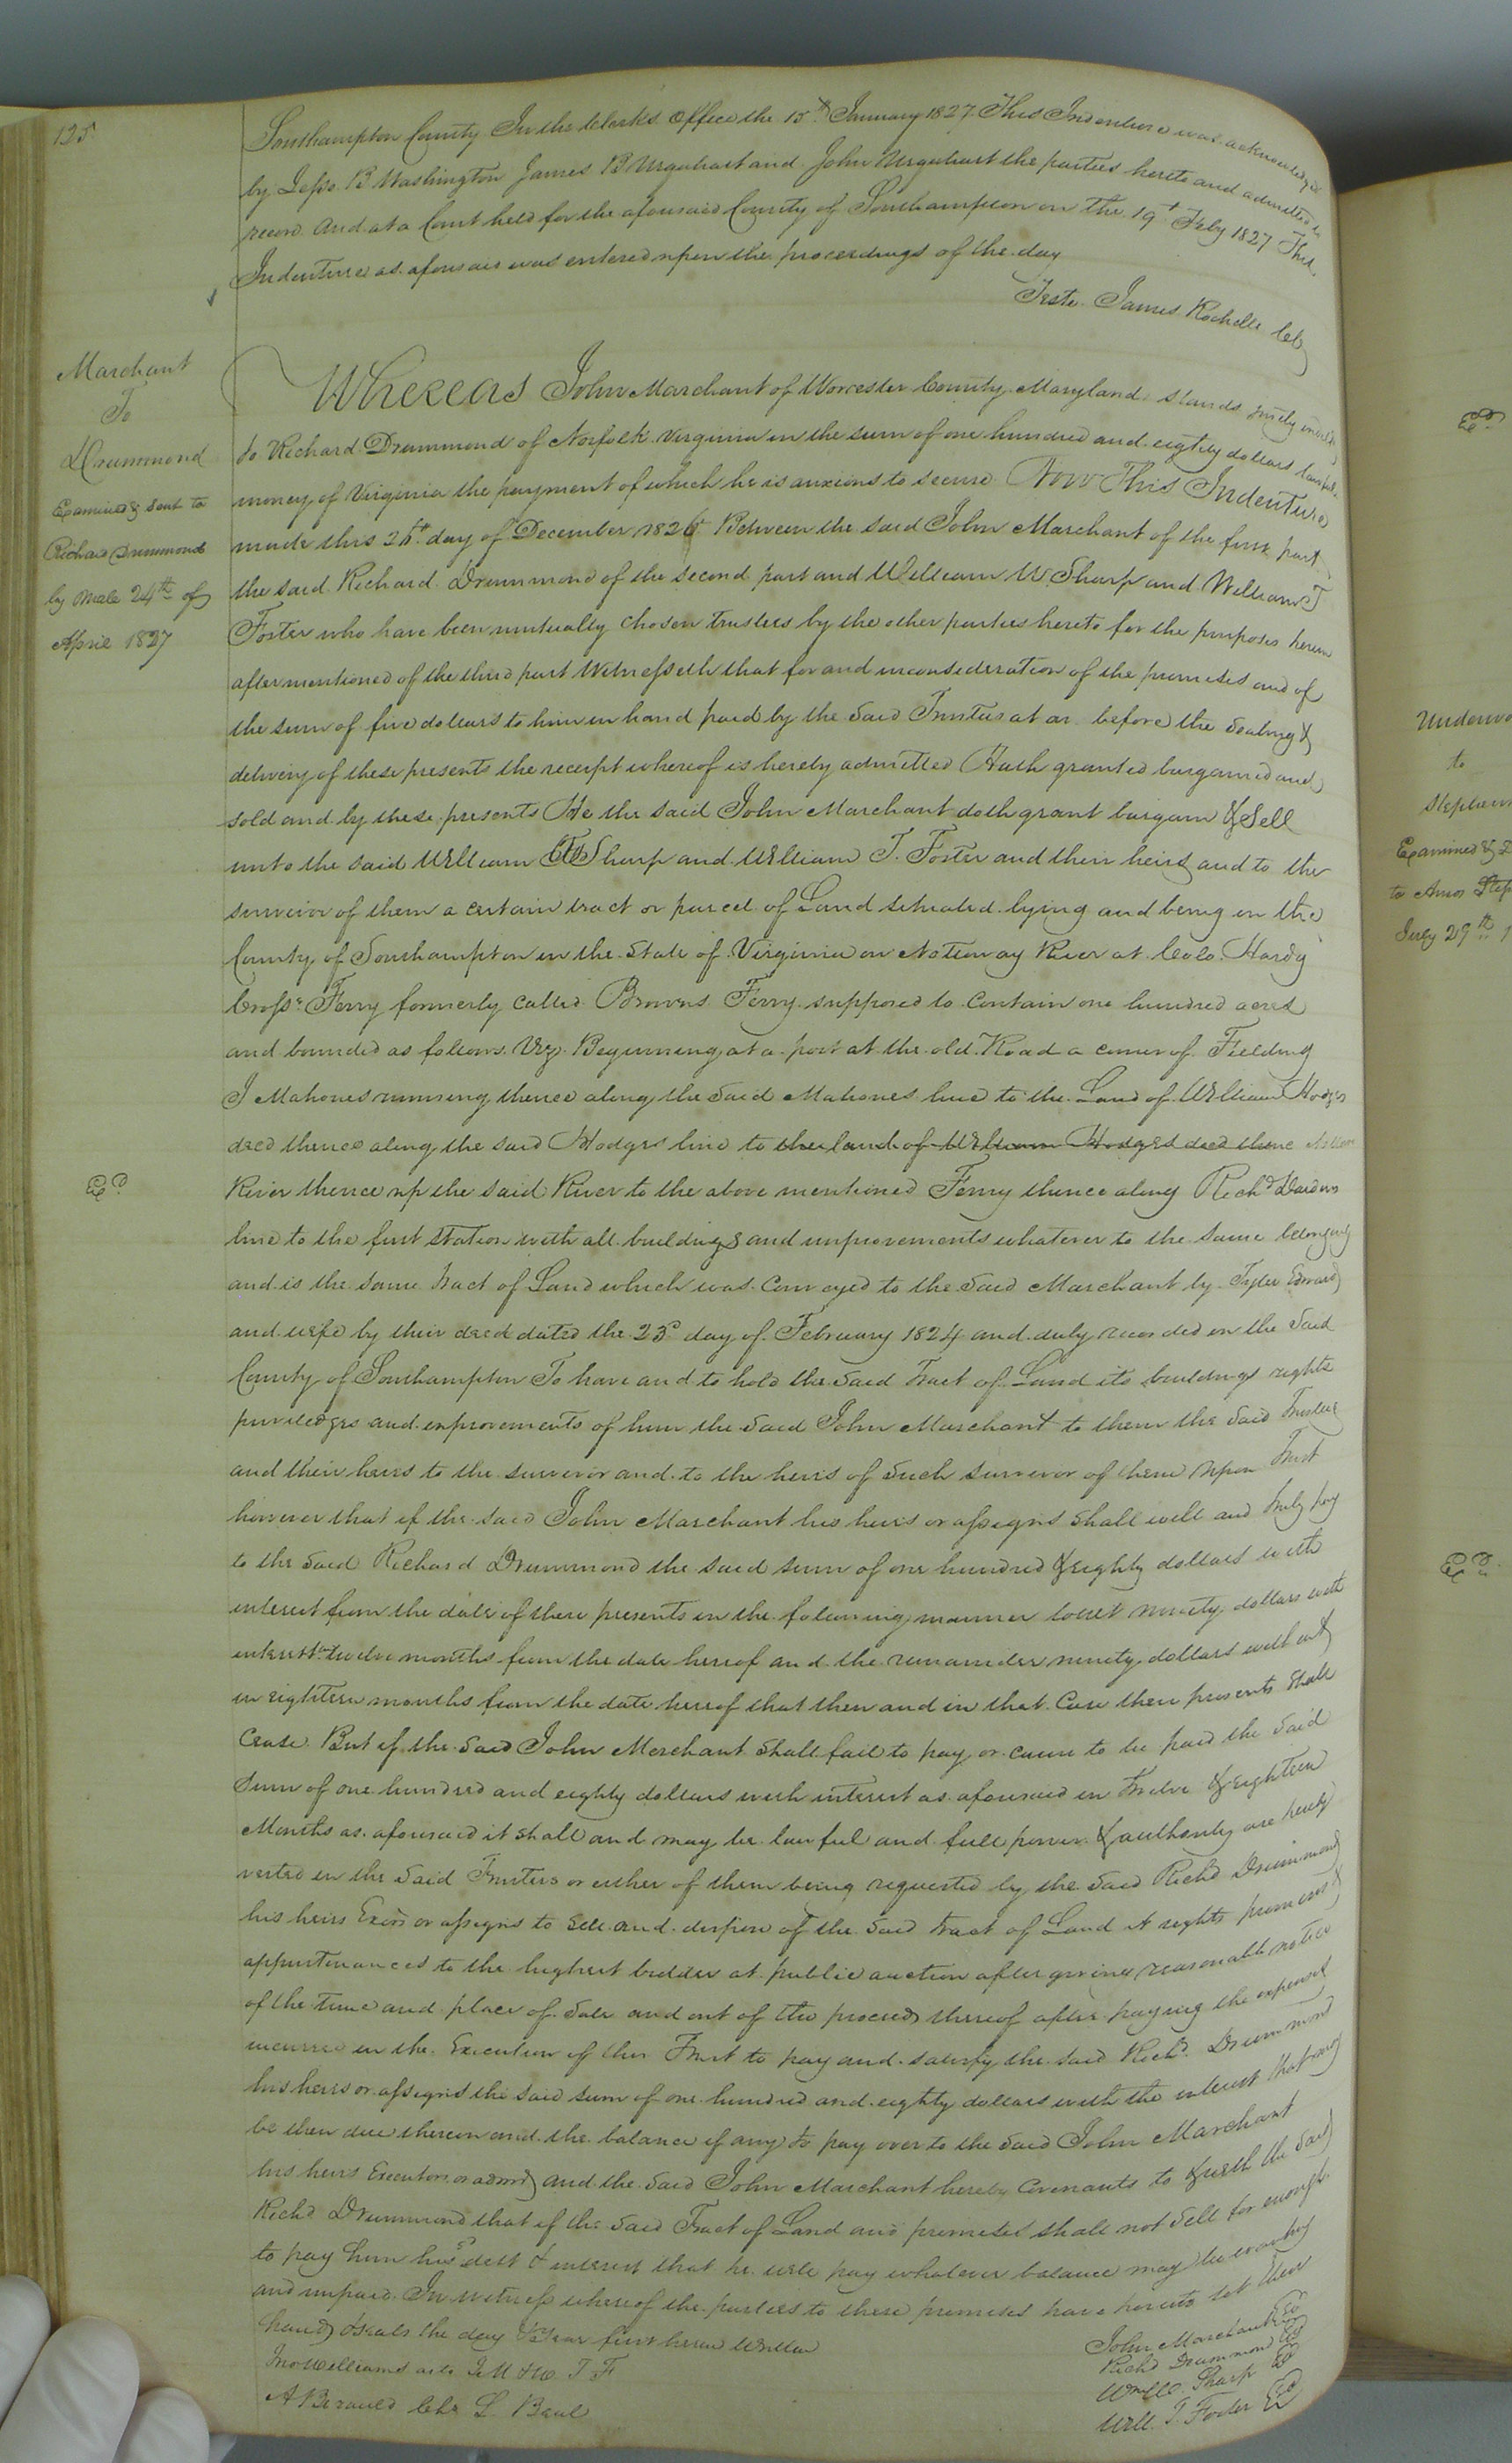 125
Southampton County In the Clerks Office the 15th January 1827 This Indenture was acknowledged
by Jesse B Washington James B Urquhart and John Urquhart the parties hereto and admitted to
record And at a Court held for the aforesaid County of Southampton on the 19t Feby 1827 This
Indenture as aforesaid was entered upon the proceedings of the day
Teste James Rochelle Clk
Marchant
To
Drummond
Examined & Sent to
Richard Drummond
by Male 24th of
April 1827
Whereas John Marchant of Worcester County Maryland stands justly indebted
to Richard Drummond of Norfolk Virginia in the sum of one hundred and eighty dollars lawful
money of Virginia the payment of which he is anxious to secure Now This Indenture
made this day of December 1826 Between the said John Marchant of the first part
the said Richard Drummond of the second part and William W Sharp and William T
Foster who have been mutually chosen trustees by the other parties hereto for the purposes herein
after mentioned of the third part Witnesseth that for and in consideration of the premises and of
the sum of five dollars to him in hand paid by the said Trustees at or before the Sealing &
delivery of these presents the receipt whereof is hereby admitted Hath granted bargained and
sold and by these presents He the said John Marchant doth grant bargain & Sell
unto the said William W Sharp and William T. Foster and their heirs and to the
survivor of them a certain tract or parcel of Land situated lying and being in the
County of Southampton in the State of Virginia on Notoway River at Colo. Hardy
Cross' Ferry formerly called Browns Ferry supposed to contain one hundred acres
and bounded as follows Viz. Beginning at a post at the old Road a corner of Fielding
J Mahones running thence along the said Mahones line to the Land of William Hodges
decd thence along the said Hodges line to the land of William Hodges decd thence
River thence up the said River to the above mentioned Ferry thence along Richd Dardens
line to the first station with all buildings and improvements whatever to the same belonging
and is the same tract of Land which was conveyed to the said Marchant by Tyler Edwards
and wife by their deed dated the 23d day of February 1824 and duly recorded in the Said
County of Southampton To have and to hold the said tract of Land its buildings rights
priviledges and improvements of him the said John Marchant to them the said Trustees
and their heirs to the survivor and to the heirs of such survivor of them upon Trust
however that if the said John Marchant his heirs or assigns shall well and truly pay
to the said Richard Drummond the said sum of one hundred & eighty dollars with
interest from the date of these presents in the following manner towit ninety dollars with
interest twelve months from the date hereof and the remainder ninety dollars with int
in eighteen months from the date hereof that then and in that case these presents shall
Cease. But if the said John Merchant shall fail to pay or cause to be paid the said
Sum of one hundred and eighty dollars with interest as aforesaid in twelve & eighteen
Months as aforesaid it shall and may be lawful and full power & authority are hereby
vested in the said Trustees or either of them being requested by the said Richd Drummond
his heirs Exors or assigns to Sell and dispose of the said tract of Land it rights premises &
appurtenances to the highest bidder at public auction after giving reasonable notice
of the time and place of sale and out of the proceeds thereof after paying the expenses
incurred in the Execution of this Trust to pay and satisfy the said Richd. Drummond
his heirs or assigns the said sum of one hundred and eighty dollars with the interest that may
be then due thereon and the balance if any to pay over to the said John Marchant
his heirs Executors or admrs and the said John Marchant hereby Covenants to & with the said
Richd Drummond that if the said Tract of Land and premises shall not Sell for enough
to pay him his debt & interest that he will pay whatever balance may be owing
and unpaid. In witness whereof the parties to these premises have hereto set their
hands & seals the day & Year first herein Written
John Marchant
Jno Williams as to J M & W T F
Richd Drummond
Wm W. Sharp
Will. T. Foster
Underwo
to
Stephen
Examined &
to Amos Step
July 29th